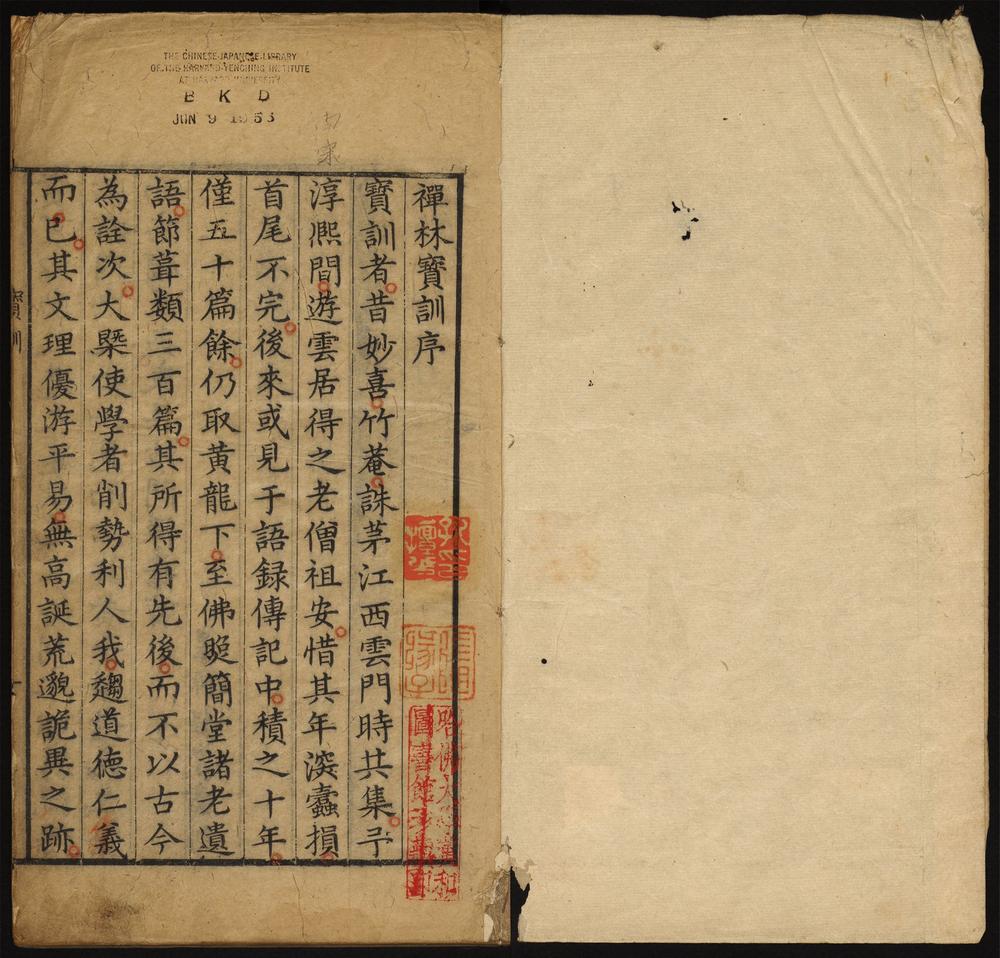 THE CHINESE-JAPANESE LIBRARY
OF THE HARVARD-YENCHING INSTITUTE
AT HARVARD UNIVERSITY
B K D
JUN 9 1953
禪林寶訓序
寶訓者昔妙喜竹菴誅茅江西雲門時共集予
淳熈間遊雲居得之老僧祖安惜其年深蠧損
首尾不完後來或見于語録傳記中積之十年
僅五十篇餘仍取黄龍下至佛照簡堂諸老遺
語節葺類三百篇其所得有先後而不以古今
為詮次大槩使學者削勢利人我趨道德仁義
而已其文理優游平易無高誕荒邈詭異之跡
寶訓
哈佛大學漢和
圖書館珍藏印